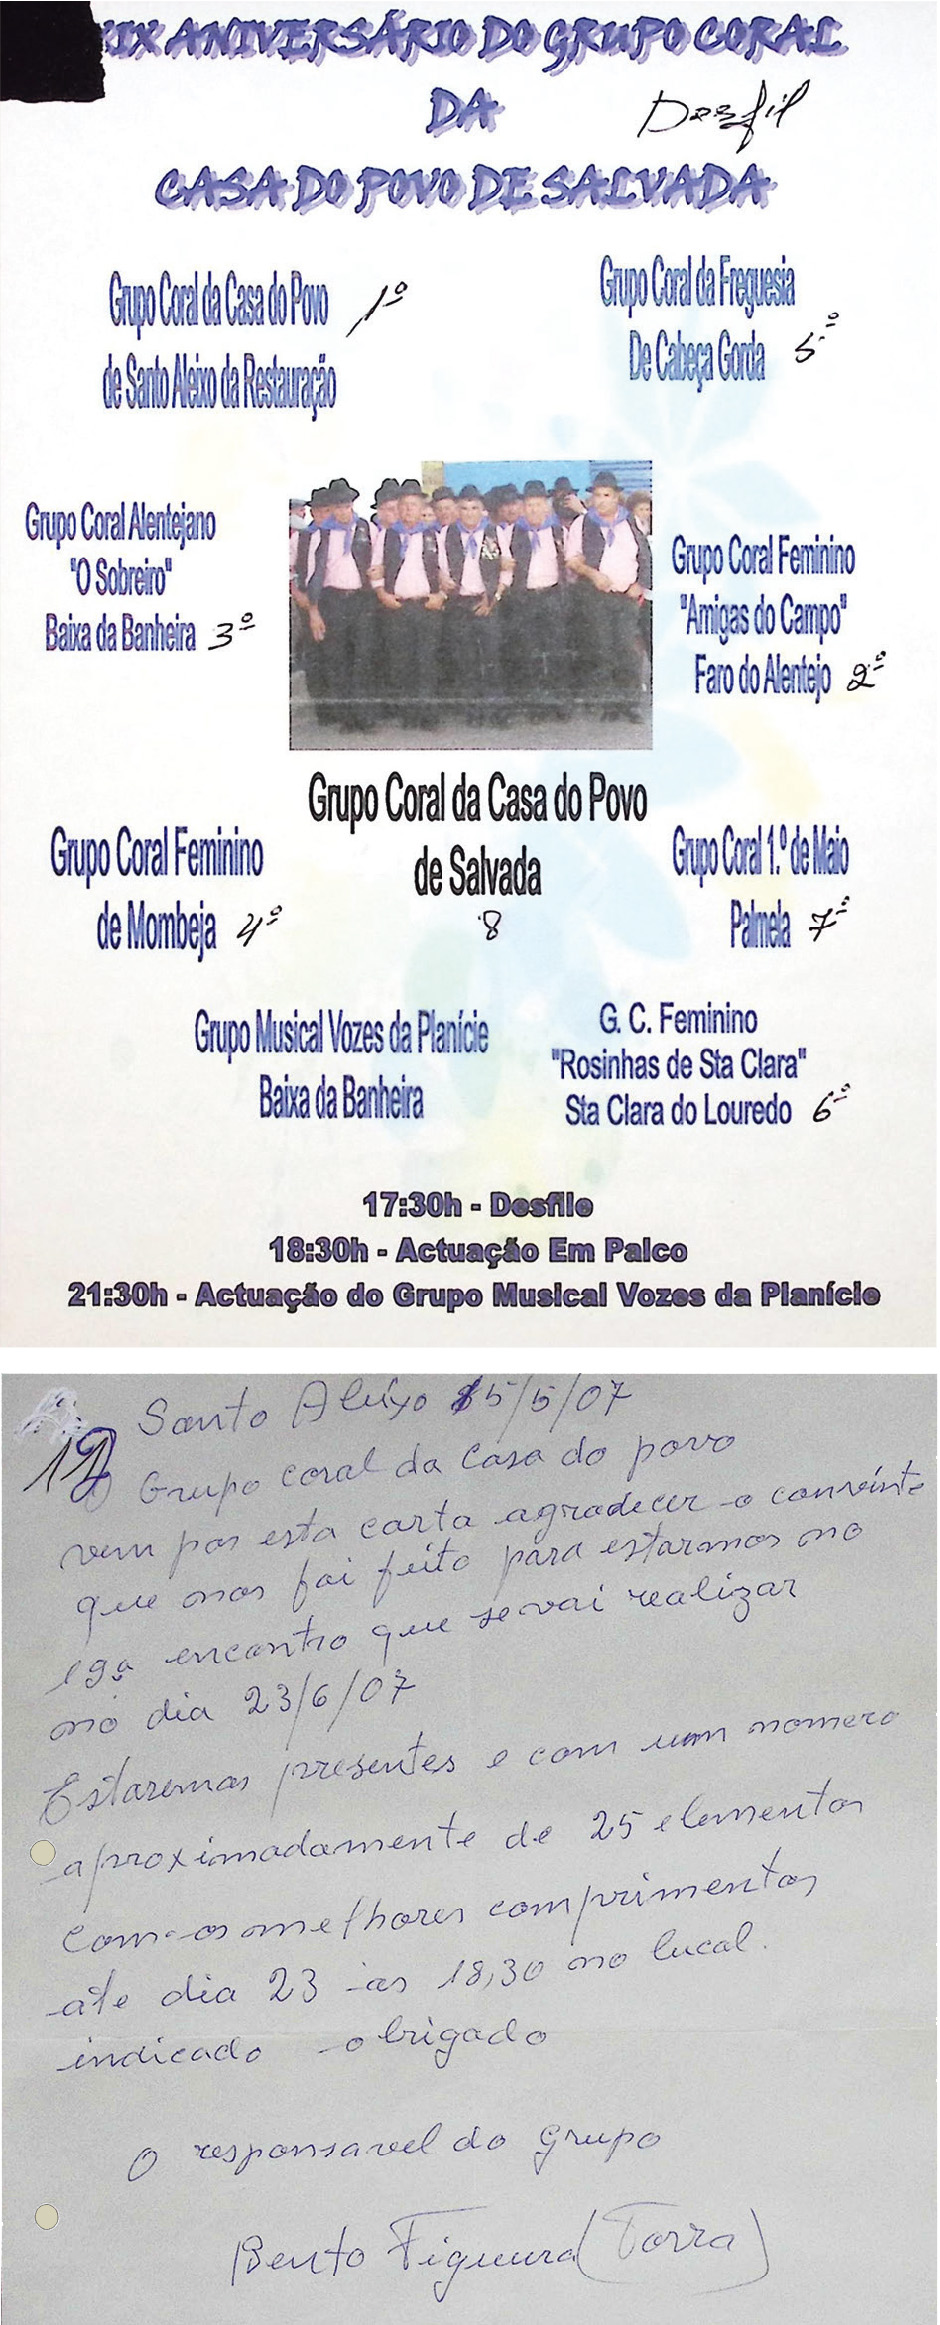 XIX ANIVERSÁRIO DO GRUPO CORAL
DA
Desfil
CASA DO POVO DE SALVADA
Grupo Coral da Casa do Povo 1º
de Santo Aleixo da Restauração
Grupo Coral da Freguesia
De Cabeça Gorda 5º
Grupo Coral Alentejano
"O Sobreiro"
Baixa da Banheira 3º
Grupo Coral Feminino
"Amigas do Campo"
Faro do Alentejo 2º
Grupo Coral da Casa do Povo
de Salvada
8
Grupo Coral Feminino
de Mombeja 4º
Grupo Coral 1.º de Maio
Palmela 7º
Grupo Musical Vozes da Planície
Baixa da Banheira
G. C. Feminino
"Rosinhas de Sta Clara"
Sta Clara do Louredo 6º
17:30h - Desfile
18:30h - Actuação Em Palco
21:30h - Actuação do Grupo Musical Vozes da Planície
Santo Aleixo 15/5/07
O Grupo coral da Casa do povo
vem por esta carta agradecer o convinte
que nos foi feito para estarmos no
19º encontro que se vai realizar
no dia 23/6/07
Estaremos presentes e com um nomero
aproximadamente de 25 elementos
Com os melhores comprimentos
até dia 23 as 18,30 no lucal.
indicado obrigado
O responsavel do Grupo
Bento Figueira (Torra)